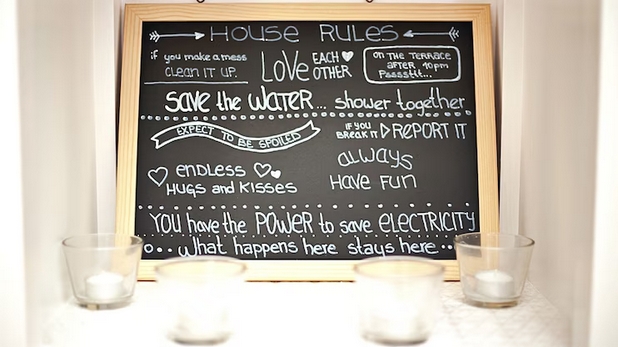 House Rules
if you make a mess
CLEAN IT UP.
LOVE EACH OTHER
ON THE TERRACE
AFTER 10pm
Pssssht...
SAVE the WATER... shower together
EXPECT TO BE SPOILED
IF YOU BREAK IT REPORT IT
ENDLESS
HUGS and KISSES
ALWAYS
HAVE FUN
YOU have the POWER to save ELECTRICITY
what happens here stays here